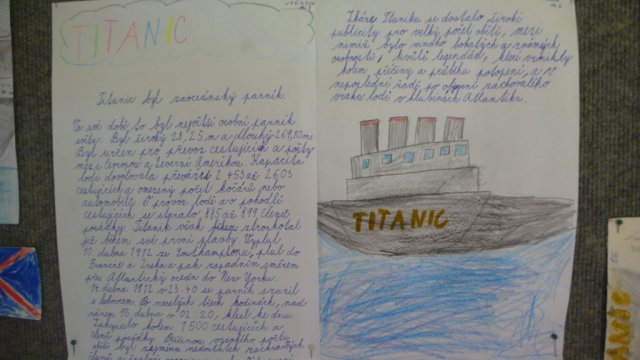 TITANIC
Titanic byl zaoceánský parník.
Ve své době to byl největší osobní parník
světa. Byl široký 28,25 m a dlouhý 269,10 m.
Byl určen pro převoz cestujících a pošty
mezi Evropou a Severní Amerikou. Kapacita
lodi dovolovala převážet 2 453 až 2 603
cestujících a omezený počet kočárů nebo
automobilů. O provoz lodi a o pohodlí
cestujících se staralo 885 až 899 členů
posádky. Titanik však během ztroskotal
již během své první plavby. Vyplul
10. dubna 1912 ze Southamptonu, plul do
Francie a Irska a pak západním směrem
přes Atlantický oceán do New Yorku.
14. dubna 1912 v 23:40 se parník srazil
s ledovcem. Po necelých třech hodinách, nad
ránem 15. dubna v 02:20, klesl ke dnu.
Zahynulo kolem 1 500 cestujících a
členů posádky. Příčinou vysokého počtu
obětí byl zejména nedostatek záchranných
Zkáze Titaniku se dostalo široké
publicity pro velký počet obětí, mezi
nimiž bylo mnoho bohatých a známých
osobností, kvůli legendám, které vznikly
kolem příčiny a průběhu potopení, a v
neposlední řadě po objevení zachovalého
vraku lodi v hlubinách Atlantiku.
TITANIC